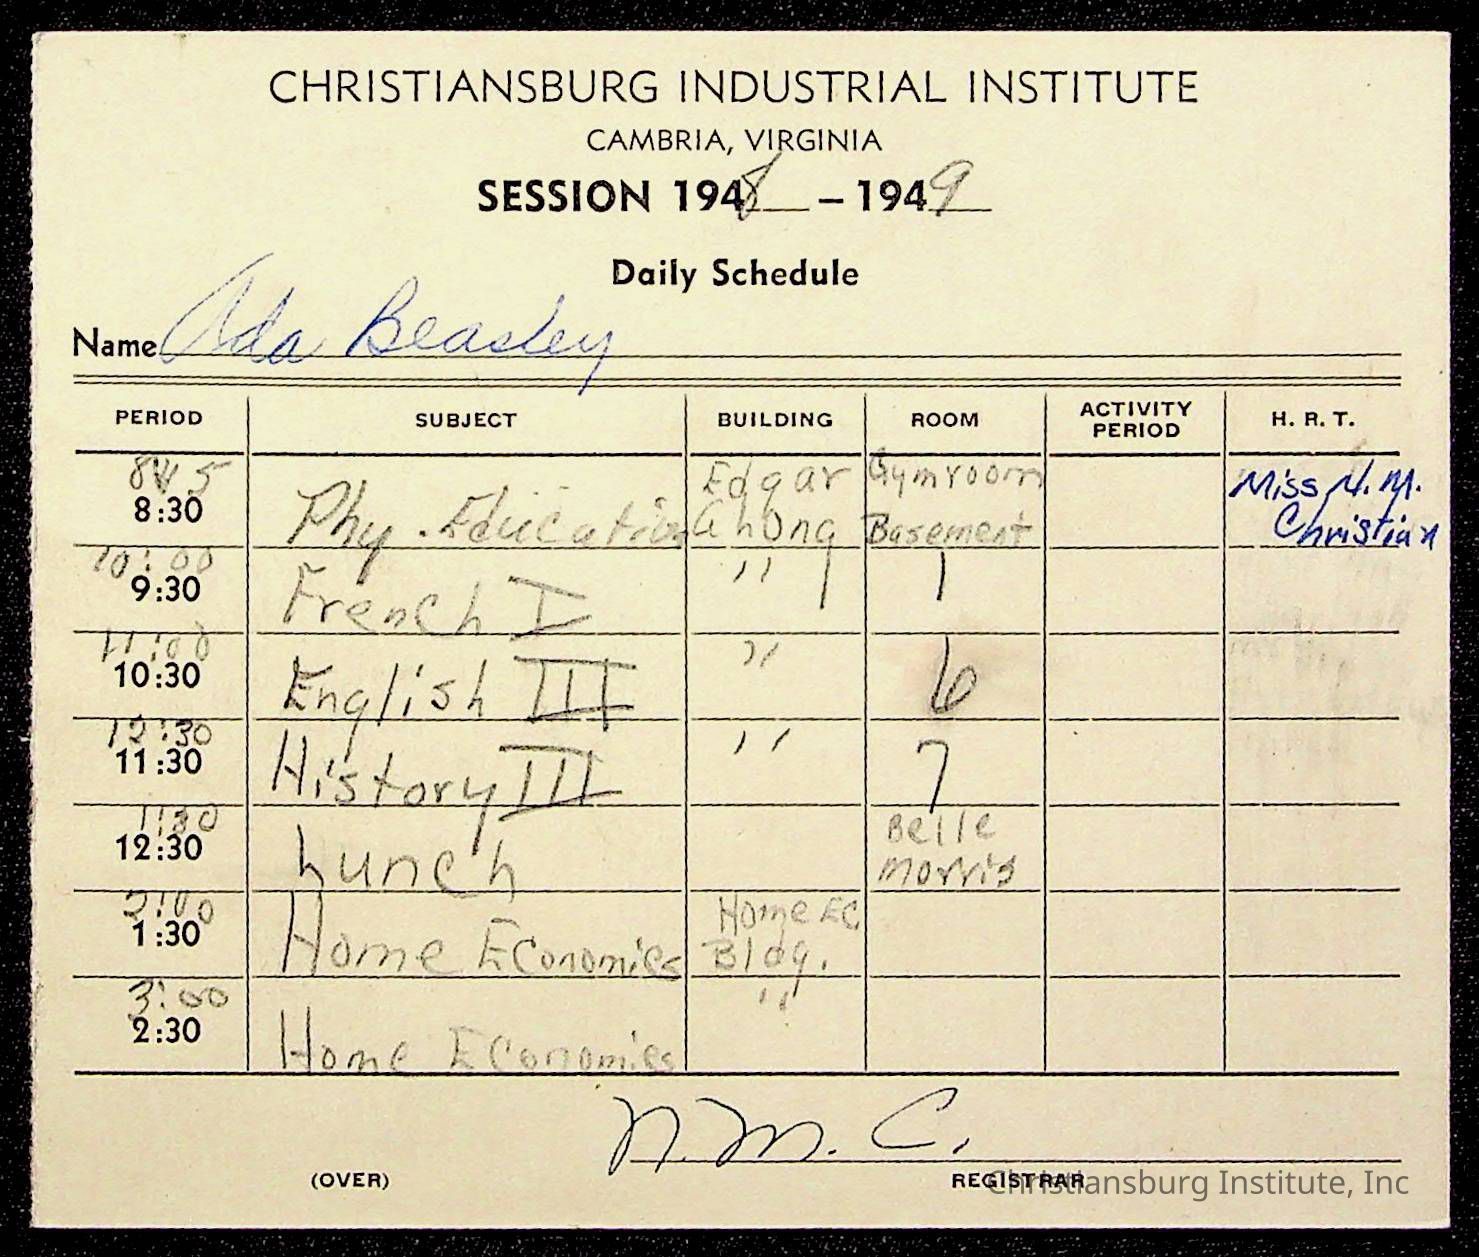 CHRISTIANSBURG INDUSTRIAL INSTITUTE
CAMBRIA, VIRGINIA
SESSION 1948 – 1949
Daily Schedule
Name Ada Beasley
PERIOD SUBJECT BUILDING ROOM ACTIVITY PERIOD H. R. T.
8:30 Phy. Education Edgar Gymroom Basement Miss N. M. Christian
10:00
9:30 French I " 1
11:00
10:30 English III " 6
12:30
11:30 History III " 7
1:30
12:30 Lunch Belle Morris
2:00
1:30 Home Economics Home EC Bldg.
3:00
2:30 Home Economics "
N. M. C.
(OVER) REGISTRAR
Christiansburg Institute, Inc